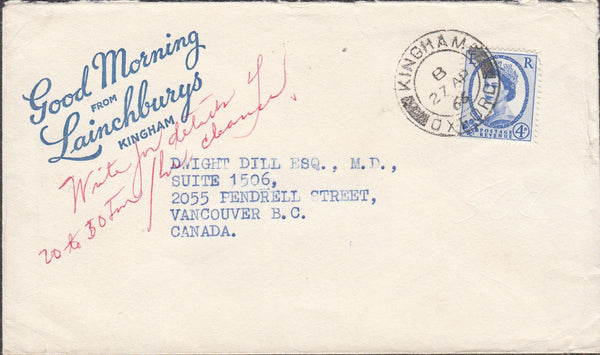 Good Morning
FROM
Lainchburys
KINGHAM
Write for details of
20 to 30 Ton / hr cleaner
KINGHAM
B
27 AP
66
OXFORD
E R
POSTAGE
REVENUE
4D
DWIGHT DILL ESQ., M.D.,
SUITE 1506,
2055 PENDRELL STREET,
VANCOUVER B.C.
CANADA.